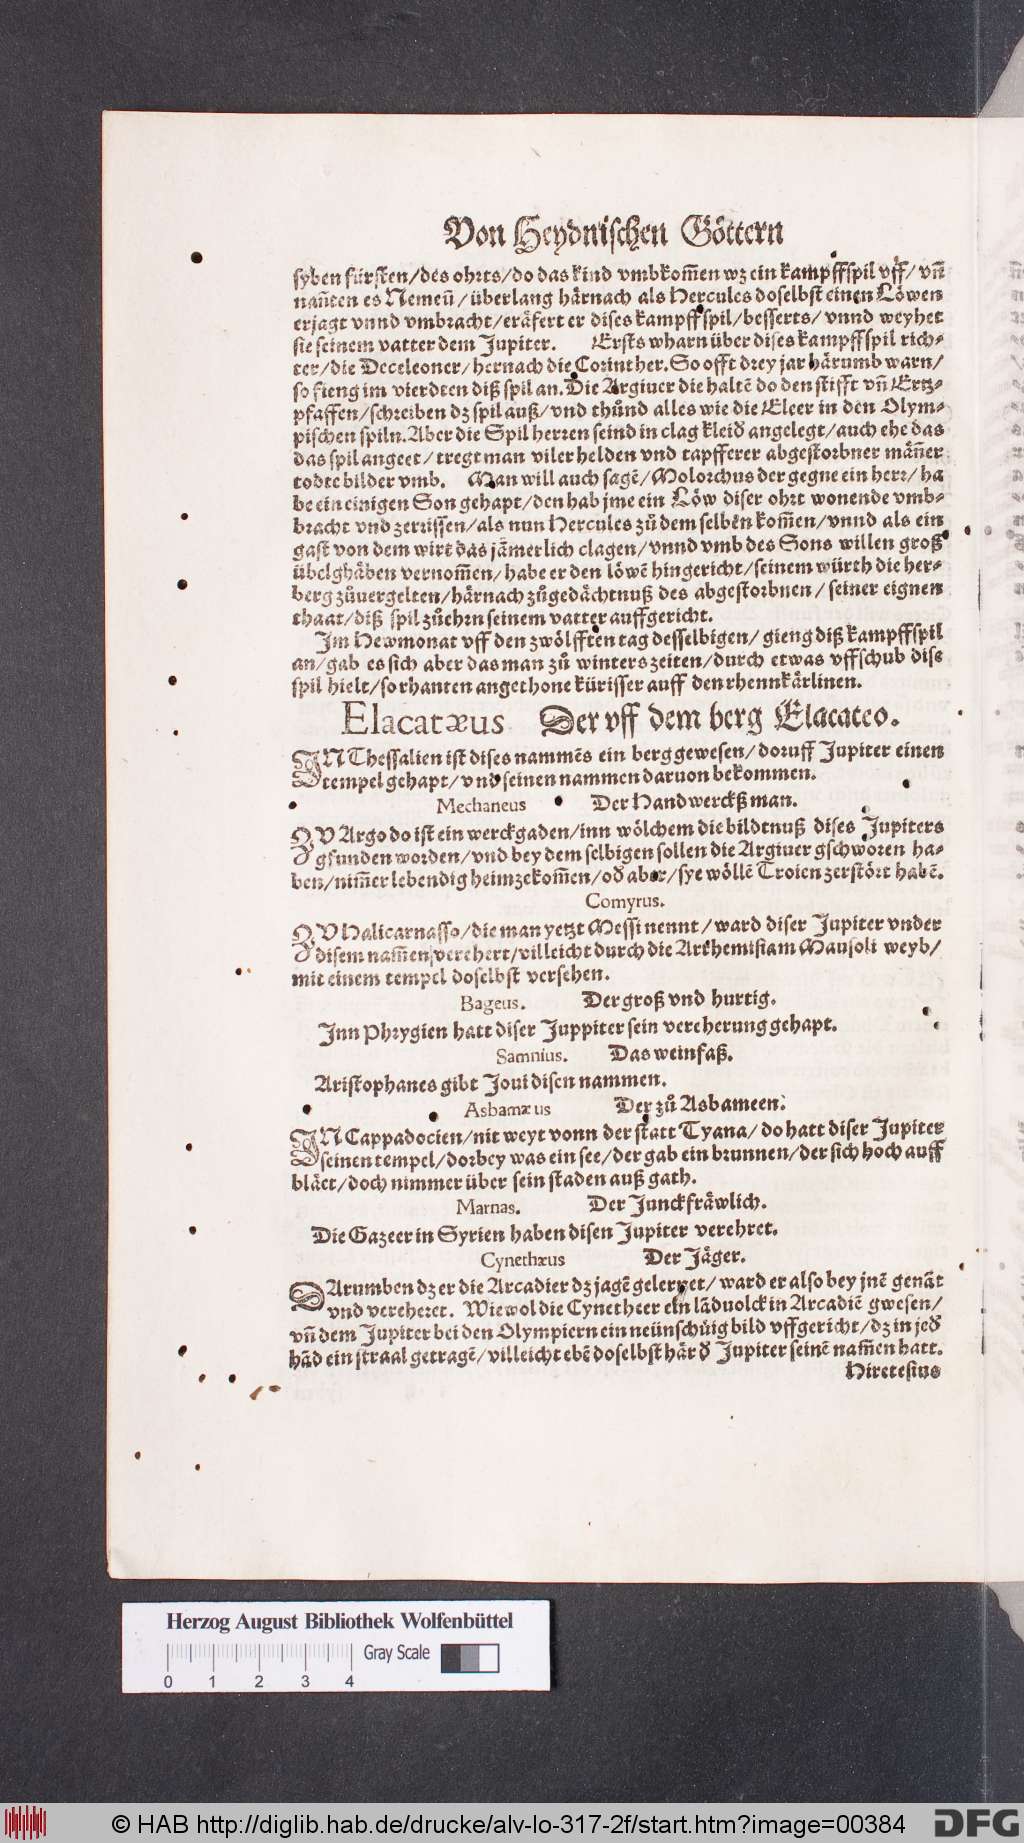 Von Heydnischen Göttern
syben fürsten/des ohrts/do das kind vmbkom̃en wz ein kampffspil vff/vñ
nañten es Nemeũ/überlang härnach als Hercules doselbst einen Löwen
erjagt vnnd vmbracht/eräfert er dises kampffspil/besserts/vnnd weyhet
sie seinem vatter dem Jupiter. Ersts wharn über dises kampffspil rich-
ter/die Deceleoner/hernach die Corinther. So offt drey jar härumb warn/
so fieng im vierdten diß spil an. Die Argiuer die haltẽ do den stifft vñ Ertz-
pfaffen/schreiben dz spil auß/vnd thůnd alles wie die Eleer in den Olym-
pischen spiln. Aber die Spil herren seind in clag kleid angelegt/auch ehe das
das spil angeet/tregt man viler helden vnd tapfferer abgestorbner mäñer
todte bilder vmb. Man will auch sagẽ/Molorchus der gegne ein herr/ha
be ein einigen Son gehapt/den hab jme ein Löw diser ohrt wonende vmb-
bracht vnd zerrissen/als nun Hercules zů dem selben kom̃en/vnnd als ein
gast von dem wirt das jãmerlich clagen/vnnd vmb des Sons willen groß
übelghäben vernom̃en/habe er den löwẽ hingericht/seinem würth die her-
berg zůuergelten/härnach zůgedächtnuß des abgestorbnen/seiner eignen
thaat/diß spil zůehrn seinem vatter auffgericht.
Im Hewmonat vff den zwölfften tag desselbigen/gieng diß kampffspil
an/gab es sich aber das man zů winters zeiten/durch etwas vffschub dise
spil hielt/so rhanten angethone kürisser auff den rhennkärlinen.
Elacatæus Der vff dem berg Elacateo.
IN Thessalien ist dises nammẽs ein berg gewesen/doruff Jupiter einen
tempel gehapt/vnd seinen nammen daruon bekommen.
Mechaneus Der Handwercksman.
ZV Argo do ist ein werckgaden/inn wölchem die bildtnuß dises Jupiters
gfunden worden/vnd bey dem selbigen sollen die Argiuer gschworen ha-
ben/nim̃er lebendig heim zekom̃en/oď aber/sye wöllẽ Troien zerstört habẽ.
Comyrus.
ZV Halicarnasso/die man yetzt Messi nennt/ward diser Jupiter vnder
disem nam̃en verehert/villeicht durch die Arthemisiam Mausoli weyb/
mit einem tempel doselbst versehen.
Bageus. Der groß vnd hurtig.
Inn Phrygien hatt diser Juppiter sein vereherung gehapt.
Samnius. Das weinfaß.
Aristophanes gibt Joui disen nammen.
Asbamæus Der zů Asbameen.
IN Cappadocien/nit weyt vonn der statt Tyana/do hatt diser Jupiter
seinen tempel/dorbey was ein see/der gab ein brunnen/der sich hoch auff
bläet/doch nimmer über sein staden auß gath.
Marnas. Der Junckfräwlich.
Die Gazeer in Syrien haben disen Jupiter verehret.
Cynethæus Der Jäger.
DArumben dz er die Arcadier dz jagẽ gelernet/ward er also bey jnẽ genãt
vnd vereheret. Wiewol die Cynetheer ein lãduolck in Arcadiẽ gwesen/
vñ dem Jupiter bei den Olympiern ein neünschůig bild vffgericht/dz in jeď
hãd ein straal getragẽ/villeicht ebẽ doselbst här ď Jupiter seinẽ nam̃en hatt.
Hiretesius
Herzog August Bibliothek Wolfenbüttel
Gray Scale
0 1 2 3 4
© HAB http://diglib.hab.de/drucke/alv-lo-317-2f/start.htm?image=00384
DFG